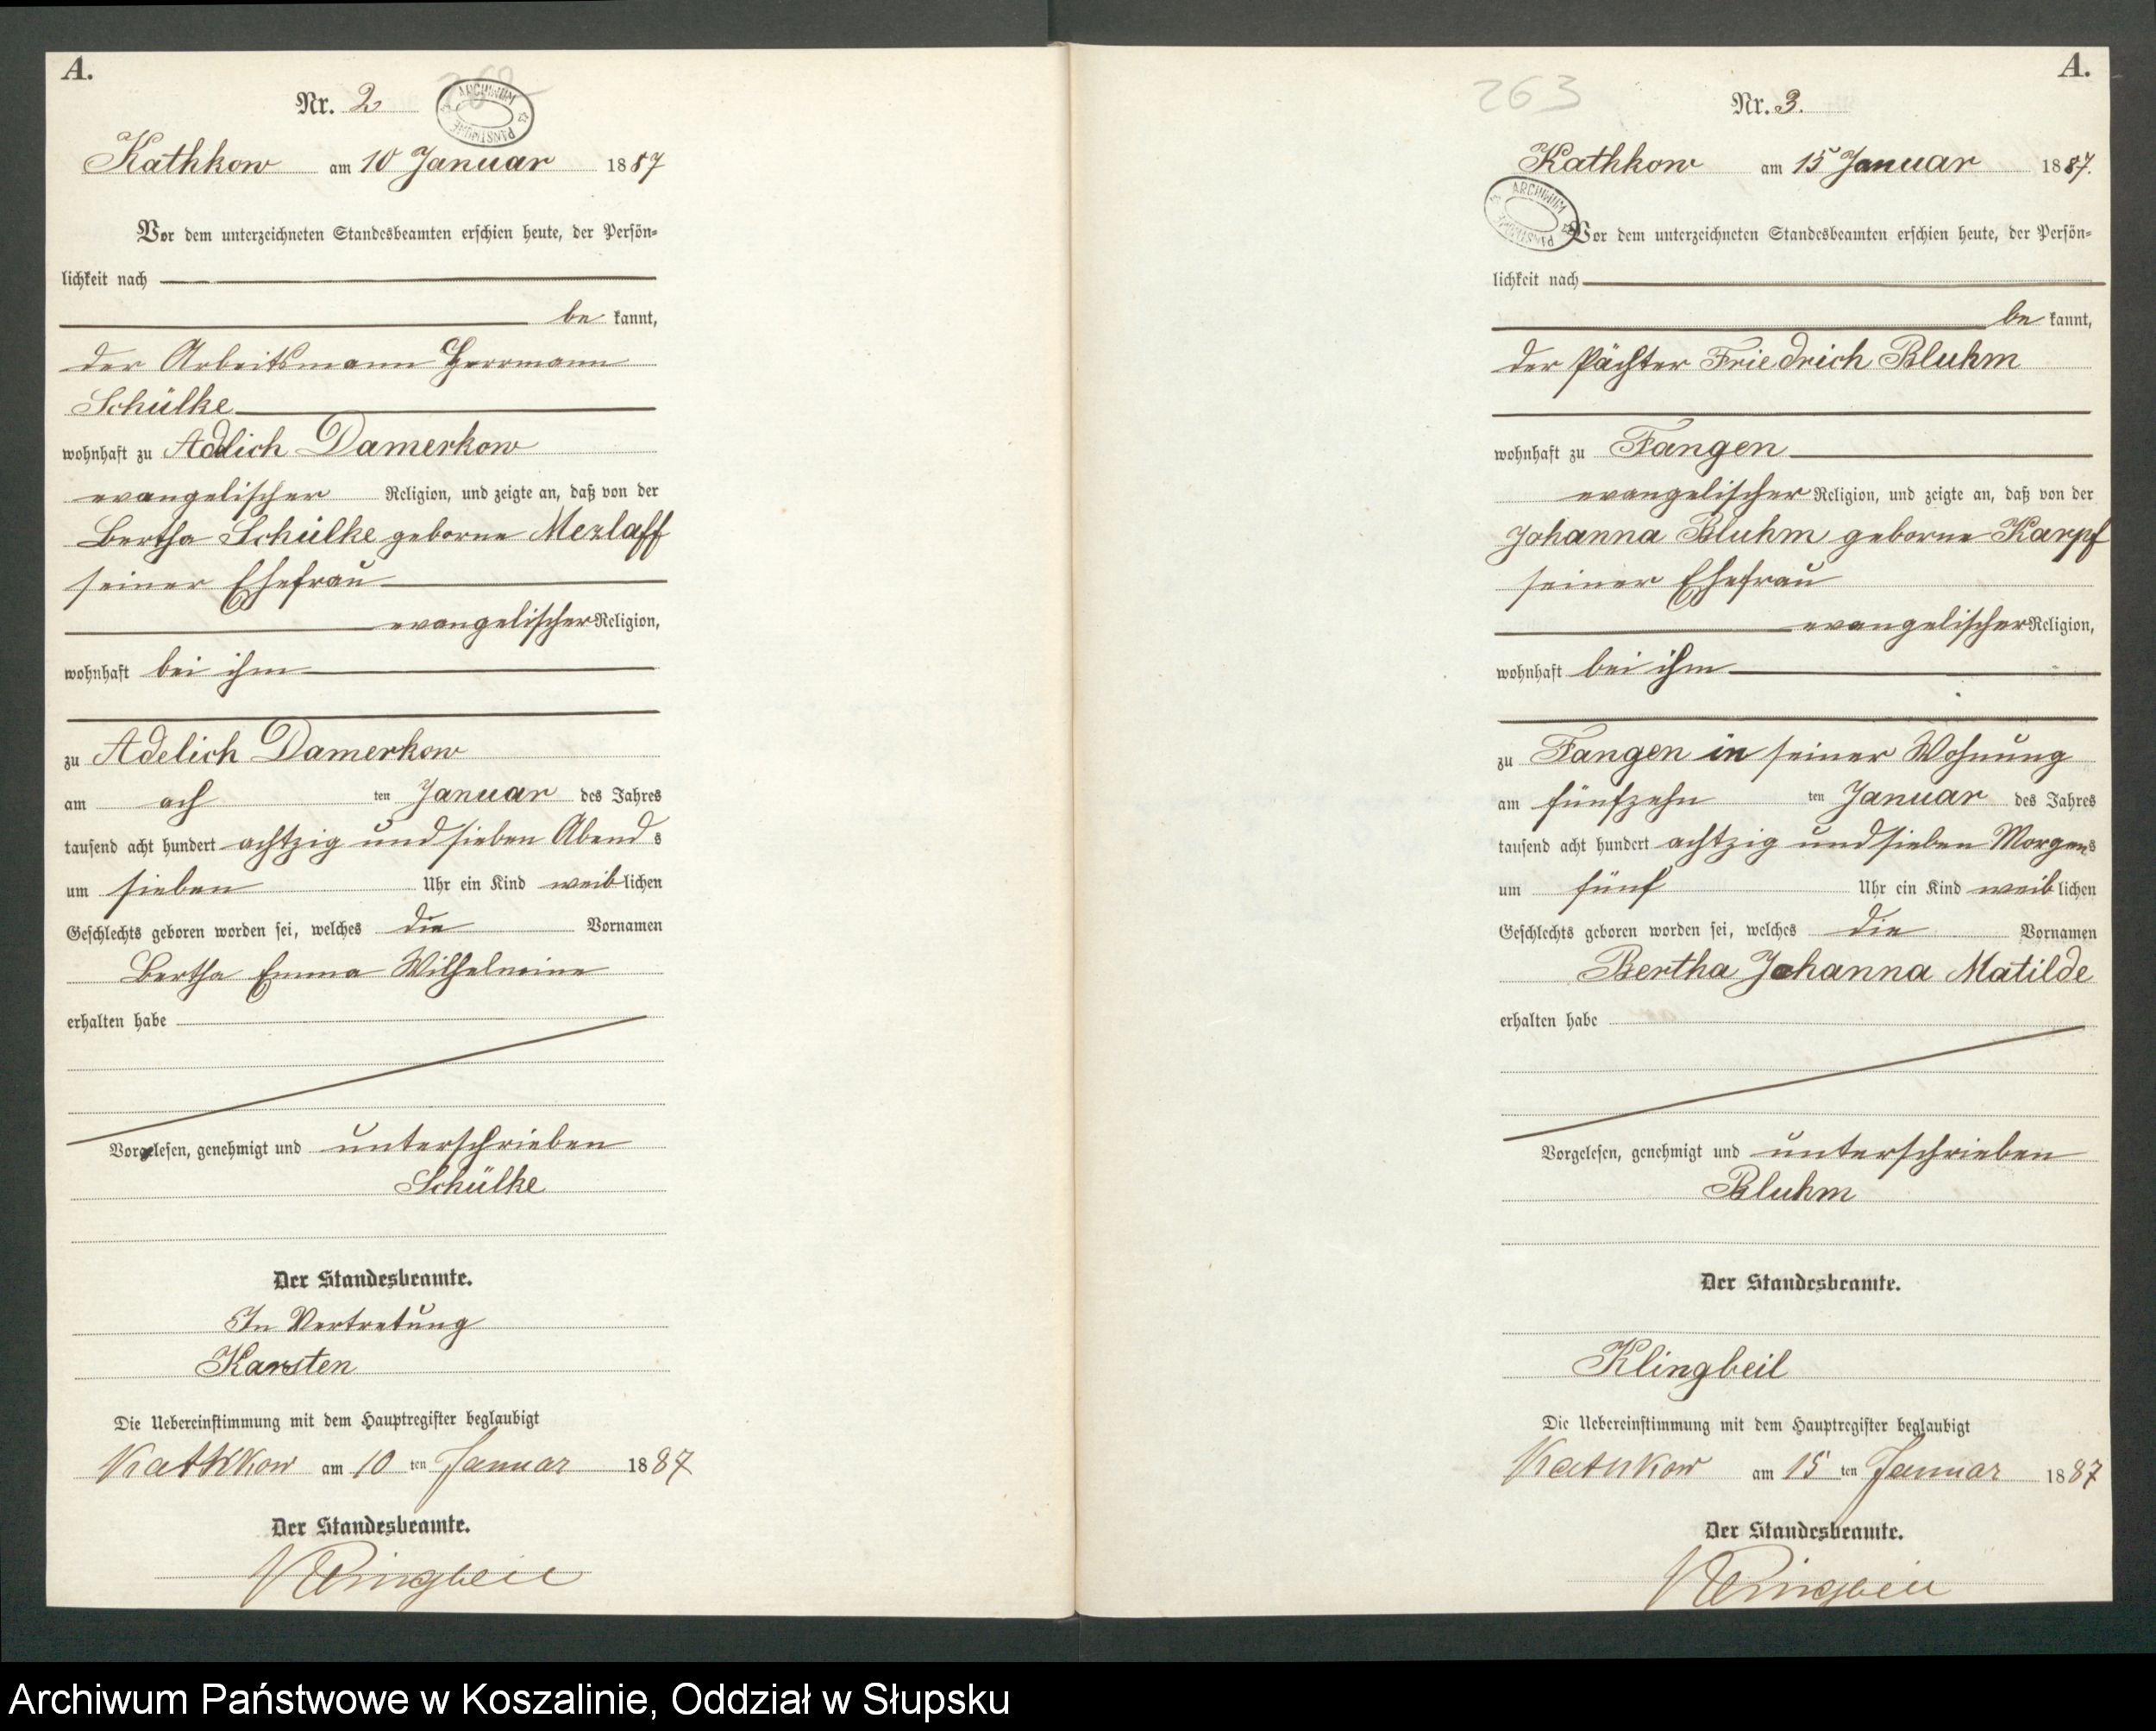 A.
Nr. 2
ARCHIWUM PAŃSTWOWE
Kathkow am 10 Januar 1887
Vor dem unterzeichneten Standesbeamten erschien heute, der Persön-
lichkeit nach
be kannt,
der Arbeitsmann Herrmann
Schülke
wohnhaft zu Adlich Damerkow
evangelischer Religion, und zeigte an, daß von der
Bertha Schülke geborne Mezlaff
seiner Ehefrau
evangelischer Religion,
wohnhaft bei ihm
zu Adelich Damerkow
am ach ten Januar des Jahres
tausend acht hundert achtzig und sieben Abend s
um sieben Uhr ein Kind weiblichen
Geschlechts geboren worden sei, welches die Vornamen
Bertha Emma Wilhelmine
erhalten habe
Vorgelesen, genehmigt und unterschrieben
Schülke
Der Standesbeamte.
In Vertretung
Karsten
Die Uebereinstimmung mit dem Hauptregister beglaubigt
Kathkow am 10 ten Januar 1887
Der Standesbeamte.
Klingbeil
A.
263
Nr. 3.
Kathkow am 15 Januar 1887.
ARCHIWUM PAŃSTWOWE
Vor dem unterzeichneten Standesbeamten erschien heute, der Persön-
lichkeit nach
be kannt,
der Pächter Friedrich Bluhm
wohnhaft zu Fangen
evangelischer Religion, und zeigte an, daß von der
Johanna Bluhm geborne Karpf
seiner Ehefrau
evangelischer Religion,
wohnhaft bei ihm
zu Fangen in seiner Wohnung
am fünfzehn ten Januar des Jahres
tausend acht hundert achtzig und sieben Morgens
um fünf Uhr ein Kind weiblichen
Geschlechts geboren worden sei, welches die Vornamen
Bertha Johanna Matilde
erhalten habe
Vorgelesen, genehmigt und unterschrieben
Bluhm
Der Standesbeamte.
Klingbeil
Die Uebereinstimmung mit dem Hauptregister beglaubigt
Kathkow am 15 ten Januar 1887
Der Standesbeamte.
Klingbeil
Archiwum Państwowe w Koszalinie, Oddział w Słupsku